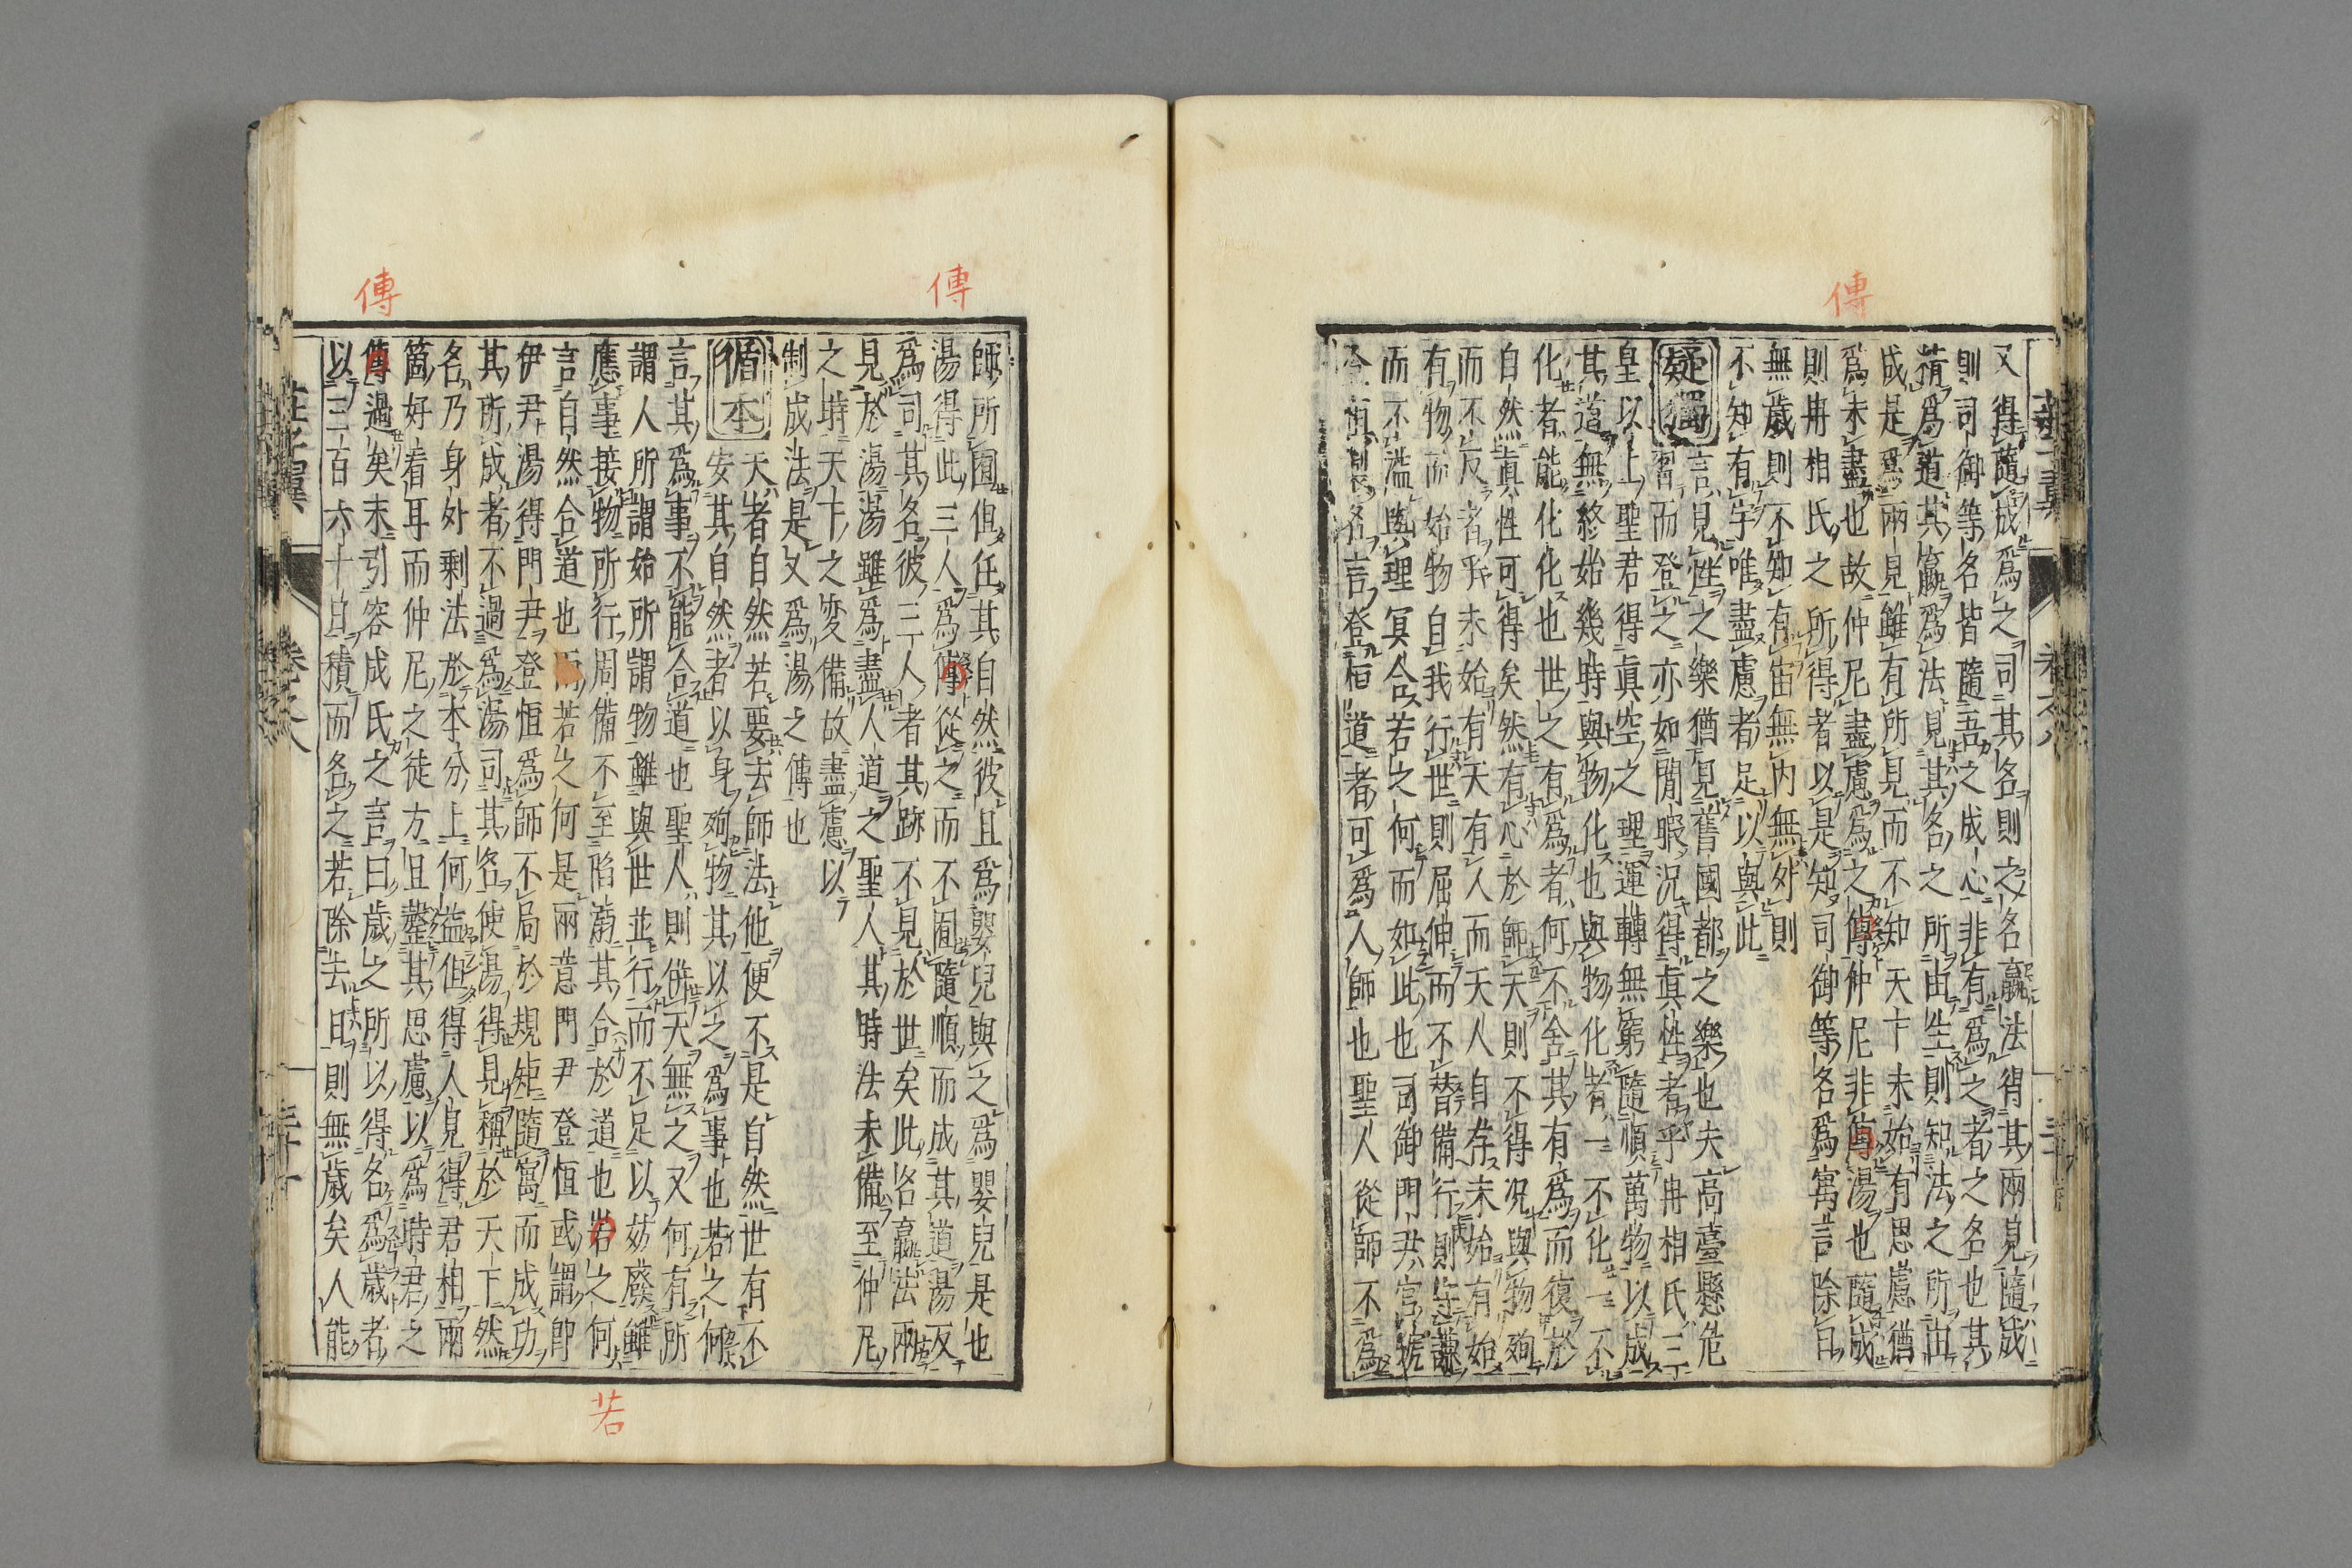 傳
又得隨成爲之司其名則之名嬴法得其兩見隨成
則司御等名皆隨吾之成心非有爲之者之名也其
爲道其嬴爲法見其名之所由生則知法之所出
成是爲兩見雖有所見而不知天下未始有思慮猶
爲未盡也故仲尼盡慮爲之傳仲尼非傳湯也隨成
則冉相氏之所得者以是知司御等名爲寓言除日
無歲則不知有宙無內無外則
不知有宇唯盡慮者足以與此
疑獨言見性之樂猶見舊國都之樂也夫高臺懸危
習而登之亦如閒暇況得眞性者乎冉相氏三
皇以上聖君得眞空之理運轉無窮隨順萬物以成
其道無終始幾時與物化也與物化者一不化一不
化者能化化也世之有爲者何不舍其有爲而復於
自然眞性可得矣然有心於師天則不得況與物殉
而不反者乎未始有天有人而天人自存未始有始
有物而始物自我行世則屈伸而不替備行則
而不濫與理冥合若之何而如此也司御門尹官號
名言登恒道者可爲人師也聖人從師不爲
傳
師所囿但任其自然彼且爲嬰兒與之爲嬰兒是也
湯得此三人爲傳從之而不囿隨順而成其道湯反
爲司其名彼三人者其跡不見於世矣此名嬴法兩
見於湯湯雖爲盡人道之聖人其時法未備至仲尼
之時天下之变備故盡慮以
制成法是又爲湯之傳也
循本天者自然若要去師法他便不是自然世有不
安其自然者以身殉物其以之爲事也若之何
言其爲事不能合道也聖人則倂天無之又何有所
謂人所謂始所謂物雖與世並行而不足以妨廢雖
應事接物所行周備不至陷溺其合於道也若之何
言自然合道也若之何是兩意門尹登恒或謂卽
伊尹湯得門尹登恒爲師不局於規矩隨寓而成功
其所成者不過爲湯司其名使湯得見稱於天下然
名乃身外剩法於本分上何益但得人見得君相兩
箇好看耳而仲尼之徒方且鑿其思慮以爲時君之
傳過矣末引容成氏之言曰歲之所以得名爲歲者
以三百六十日積而名之若除去日則無歲矣人能
傳
若